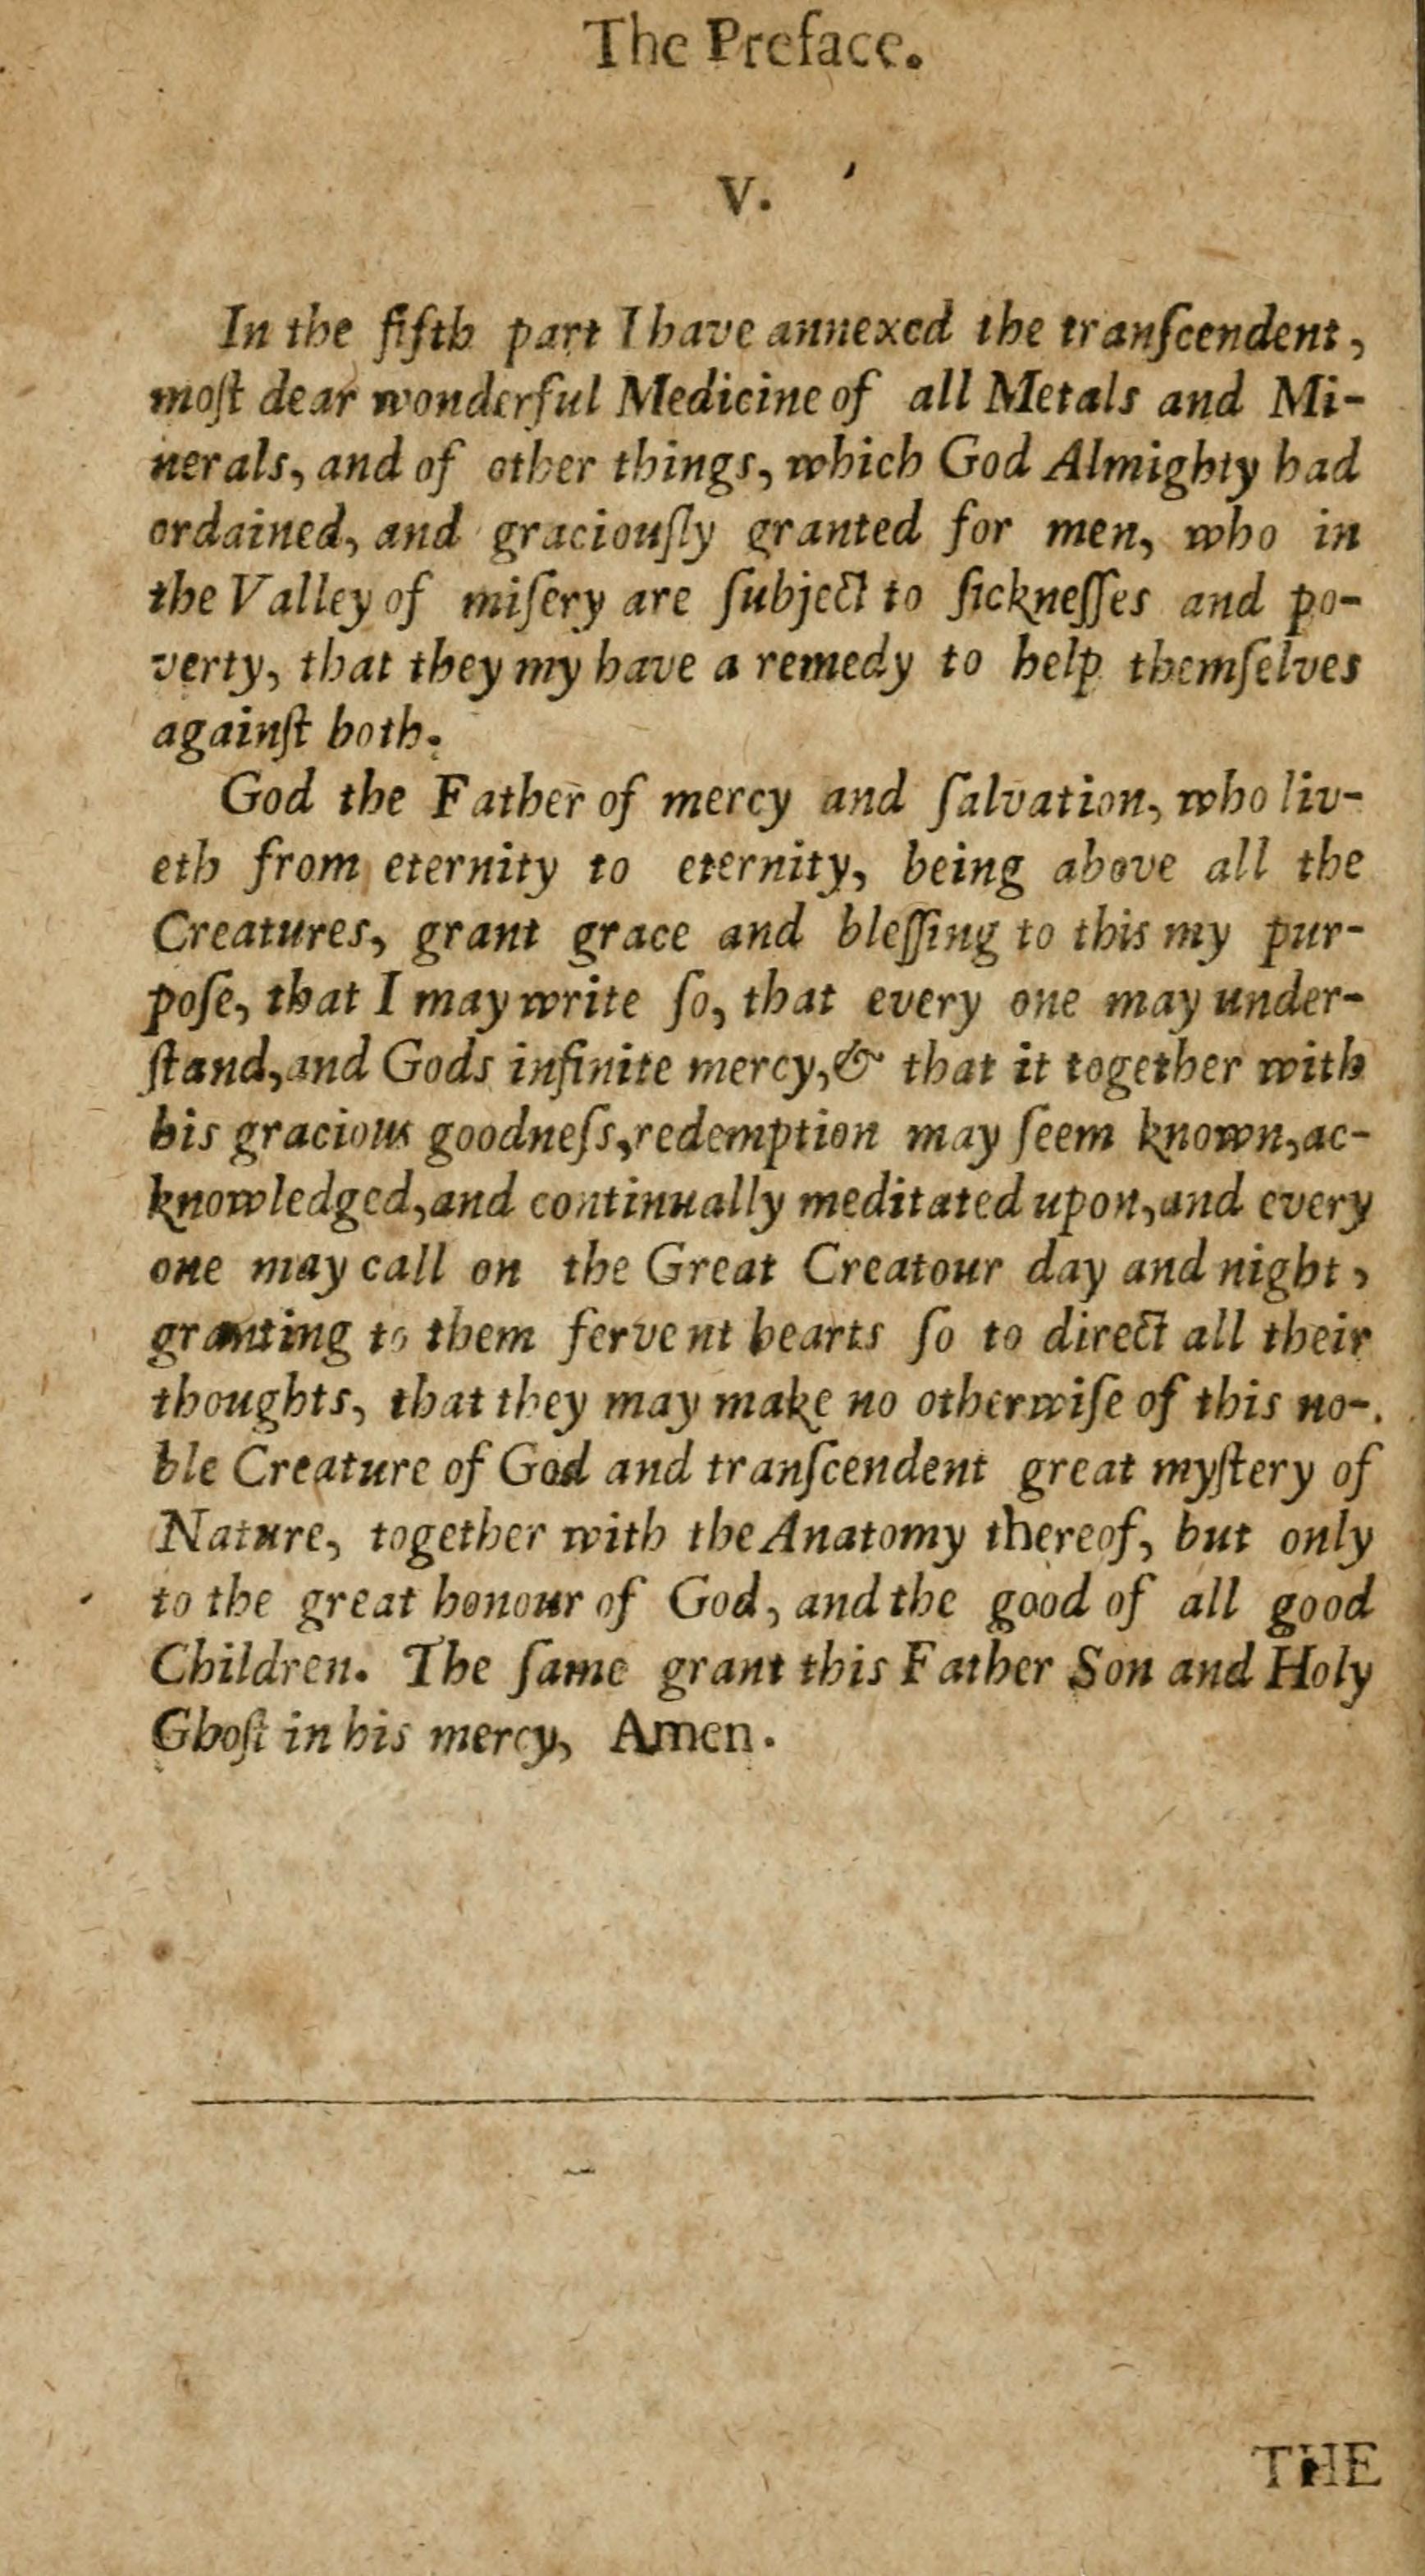 The Preface.
V.
In the fifth part I have annexed the tranſcendent,
moſt dear wonderful Medicine of all Metals and Mi-
nerals, and of other things, which God Almighty had
ordained, and graciouſly granted for men, who in
the Valley of miſery are ſubject to ſickneſſes and po-
verty, that they my have a remedy to help themſelves
againſt both.
God the Father of mercy and ſalvation, who liv-
eth from eternity to eternity, being above all the
Creatures, grant grace and bleſſing to this my pur-
poſe, that I may write ſo, that every one may under-
ſtand, and Gods infinite mercy, & that it together with
his gracious goodneſs, redemption may ſeem known, ac-
knowledged, and continually meditated upon, and every
one may call on the Great Creatour day and night,
granting to them fervent hearts ſo to direct all their
thoughts, that they may make no otherwiſe of this no-
ble Creature of God and tranſcendent great myſtery of
Nature, together with the Anatomy thereof, but only
to the great honour of God, and the good of all good
Children. The ſame grant this Father Son and Holy
Ghoſt in his mercy, Amen.
THE